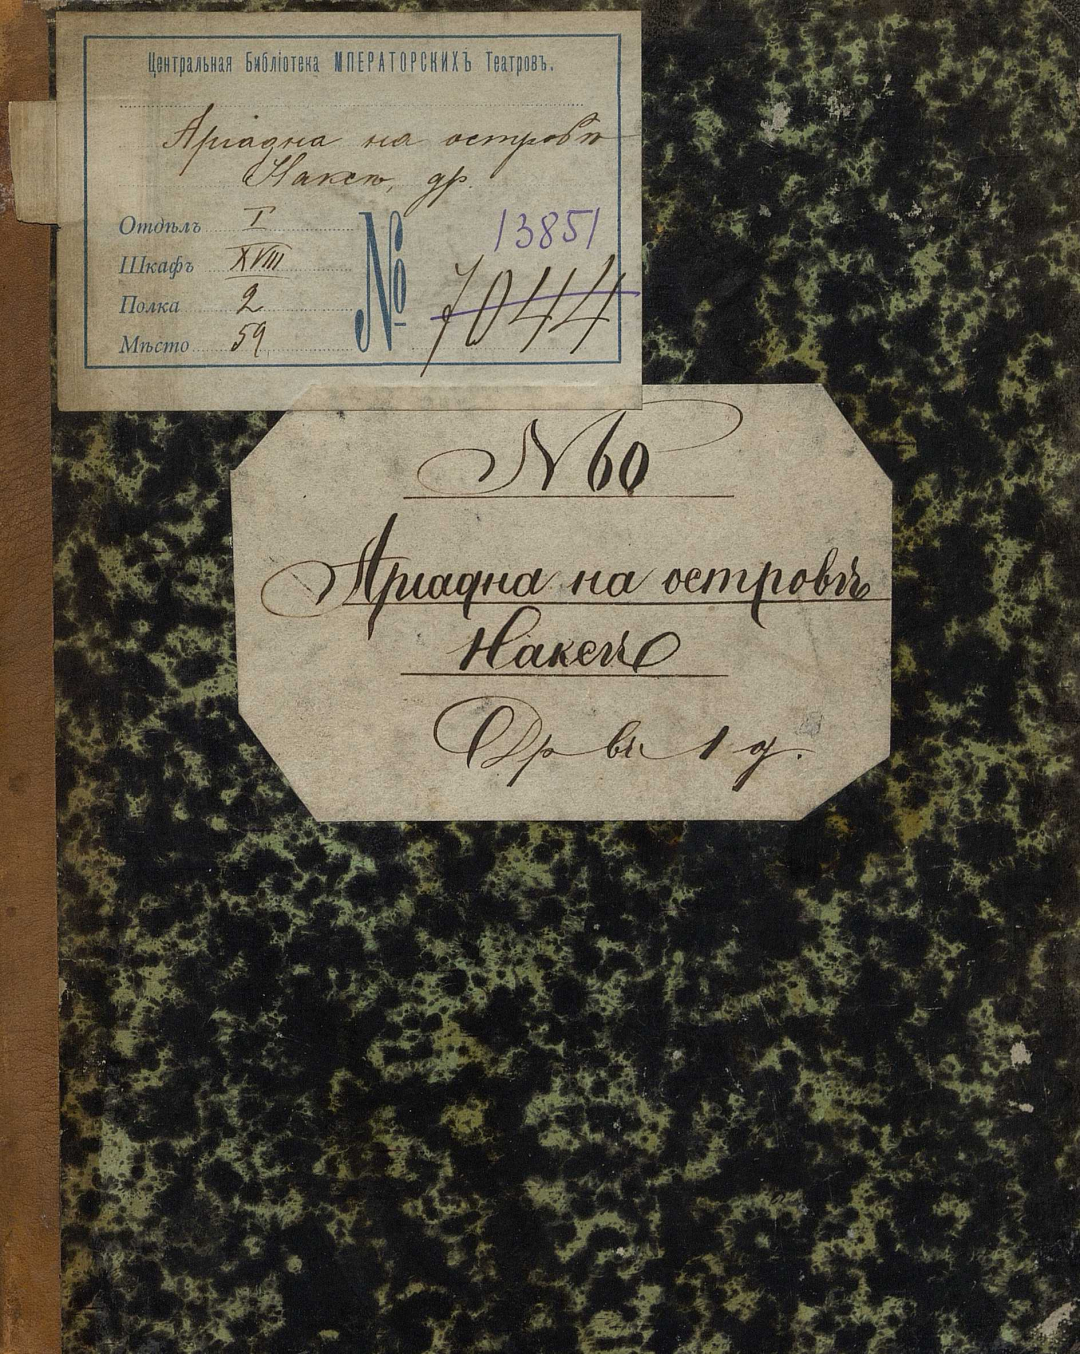 Центральная Библіотека ИМПЕРАТОРСКИХЪ Театровъ.
Аріадна на островѣ
Наксѣ, др.
Отдѣлъ I
Шкафъ XVIII
Полка 2
Мѣсто 59
№ 13851
7044
N 60
Аріадна на островѣ
Наксѣ
Др въ 1 д.